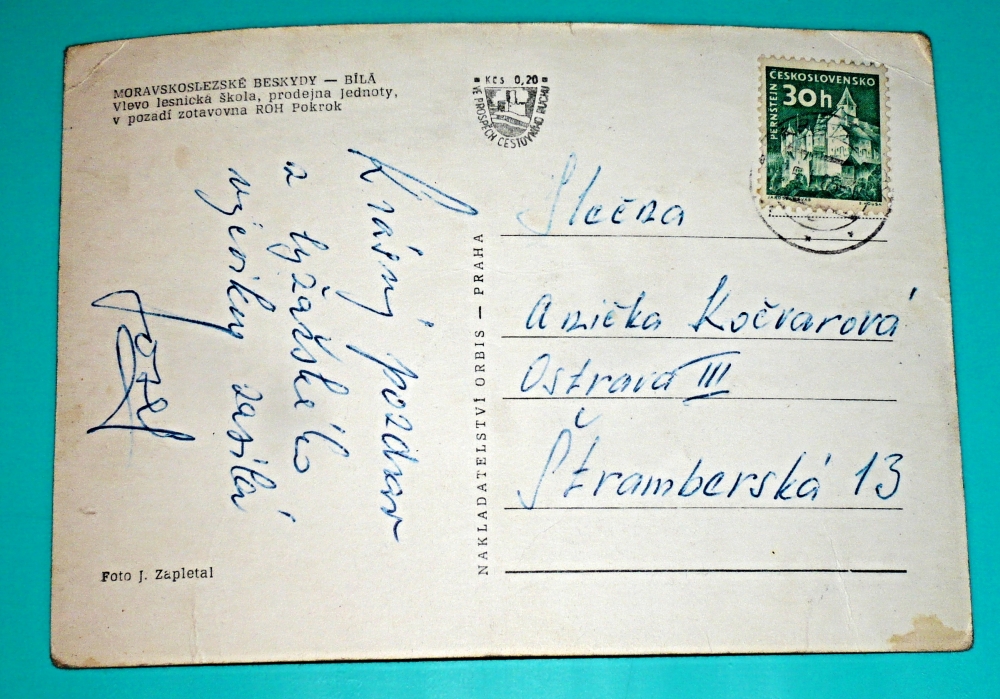 MORAVSKOSLEZSKÉ BESKYDY — BÍLÁ
Vlevo lesnická škola, prodejna Jednoty,
v pozadí zotavovna ROH Pokrok
Kčs 0,20
VE PROSPĚCH CESTOVNÍHO RUCHU
ČESKOSLOVENSKO
30h
PERNŠTEJN
Krásný pozdrav
a lyžařského
výcviku zasílá
Jozef
NAKLADATELSTVÍ ORBIS — PRAHA
Slečna
Anička Kočvarová
Ostrava III
Štramberská 13
Foto J. Zapletal